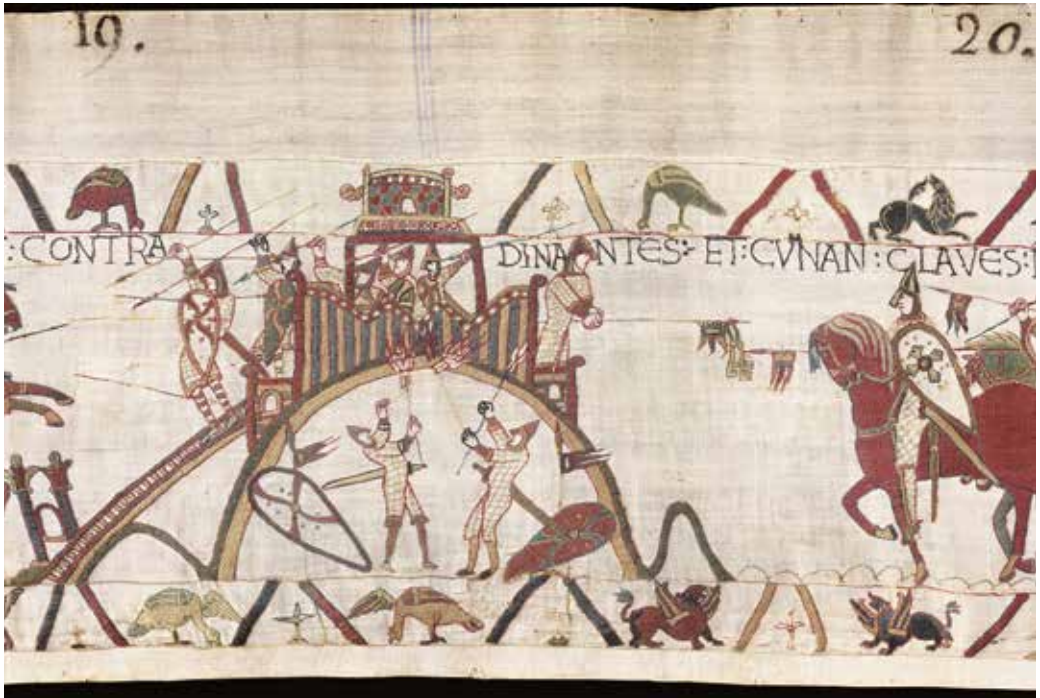 19. 20.
: CONTRA DINANTES: ET: CVNAN: CLAVES: